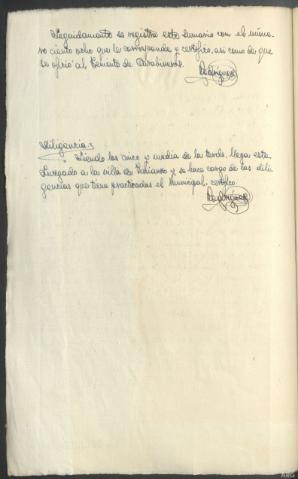 Seguidamente se registra este sumario con el núme-
ro ciento ocho que le corresponde y certifico, así como de que
se ofició al Teniente de Carabineros.
Diligencia.-
Siendo las cinco y media de la tarde, llega este
Juzgado a la villa de y se hace cargo de las dili
gencias que tiene practicadas el Municipal, certifico.